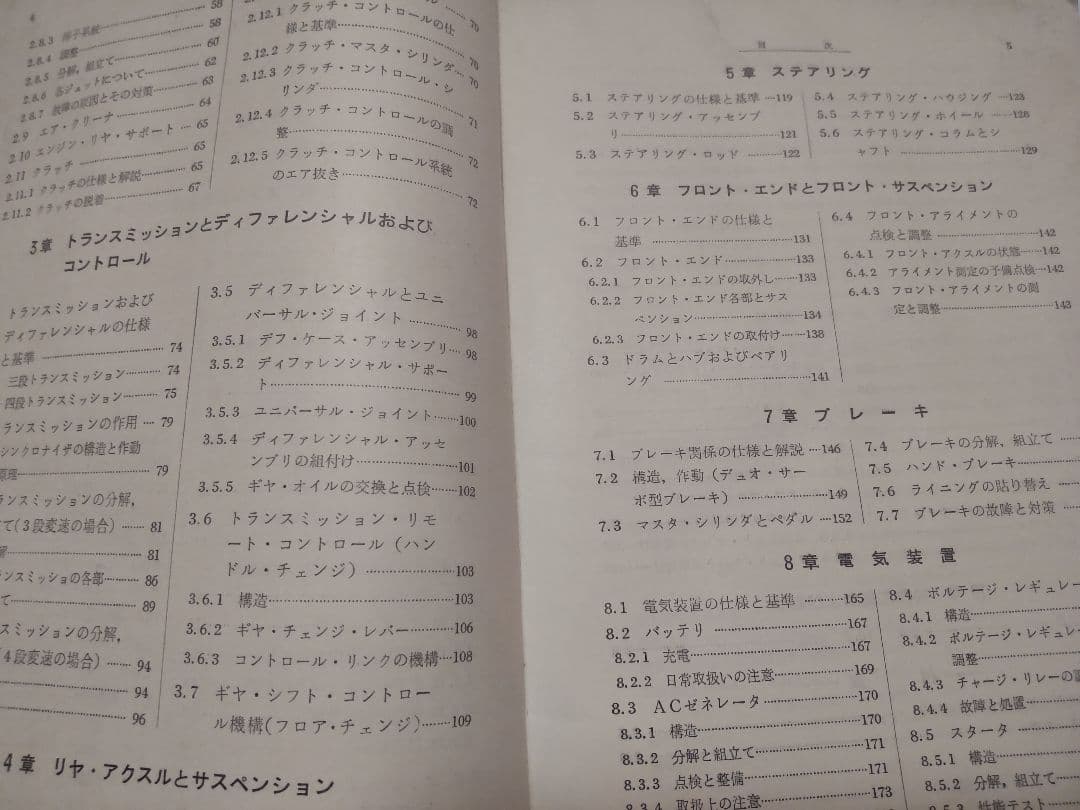 4
2.8.3 梯子系統 58
2.8.4 調整 58
2.8.5 分解，組立て 60
2.8.6 各ジェットについて 62
2.8.7 故障の原因とその対策 63
2.9 エア・クリーナ 64
2.10 エンジン・リヤ・サポート 65
2.11 クラッチ 65
2.11.1 クラッチの仕様と解説 65
2.11.2 クラッチの脱着 67
70
2.12.1 クラッチ・コントロールの仕
様と基準 70
2.12.2 クラッチ・マスタ・シリング 70
2.12.3 クラッチ・コントロール・シ
リンダ 71
2.12.4 クラッチ・コントロールの調
整 72
2.12.5 クラッチ・コントロール系統
のエア抜き 72
3章 トランスミッションとディファレンシャルおよび
コントロール
トランスミッションおよび
ディファレンシャルの仕様
と基準 74
三段トランスミッション 74
四段トランスミッション 75
ランスミッションの作用 79
シンクロナイザの構造と作動
原理 79
ランスミッションの分解，
て（3段変速の場合） 81
解 81
ランスミッショの各部 86
て 89
スミッションの分解，
（4段変速の場合） 94
94
96
3.5 ディファレンシャルとユニ
バーサル・ジョイント 98
3.5.1 デフ・ケース・アッセンブリ 98
3.5.2 ディファレンシャル・サポー
ト 99
3.5.3 ユニバーサル・ジョイント 100
3.5.4 ディファレンシャル・アッセ
ンブリの組付け 101
3.5.5 ギヤ・オイルの交換と点検 102
3.6 トランスミッション・リモ
ート・コントロール（ハン
ドル・チェンジ） 103
3.6.1 構造 103
3.6.2 ギヤ・チェンジ・レバー 106
3.6.3 コントロール・リンクの機構 108
3.7 ギヤ・シフト・コントロー
ル機構（フロア・チェンジ） 109
4章 リヤ・アクスルとサスペンション
目 次 5
5章 ステアリング
5.1 ステアリングの仕様と基準 119
5.2 ステアリング・アッセンブ
リ 121
5.3 ステアリング・ロッド 122
5.4 ステアリング・ハウジング 123
5.5 ステアリング・ホイール 128
5.6 ステアリング・コラムとシ
ャフト 129
6章 フロント・エンドとフロント・サスペンション
6.1 フロント・エンドの仕様と
基準 131
6.2 フロント・エンド 133
6.2.1 フロント・エンドの取外し 133
6.2.2 フロント・エンド各部とサス
ペンション 134
6.2.3 フロント・エンドの取付け 138
6.3 ドラムとハブおよびベアリ
ング 141
6.4 フロント・アライメントの
点検と調整 142
6.4.1 フロント・アクスルの状態 142
6.4.2 アライメント測定の予備点検 142
6.4.3 フロント・アライメントの測
定と調整 143
7章 ブレーキ
7.1 ブレーキ関係の仕様と解説 146
7.2 構造，作動（デュオ・サー
ボ型ブレーキ） 149
7.3 マスタ・シリンダとペダル 152
7.4 ブレーキの分解，組立て
7.5 ハンド・ブレーキ
7.6 ライニングの貼り替え
7.7 ブレーキの故障と対策
8章 電気装置
8.1 電気装置の仕様と基準 165
8.2 バッテリ 167
8.2.1 充電 167
8.2.2 日常取扱いの注意 169
8.3 ACゼネレータ 170
8.3.1 構造 170
8.3.2 分解と組立て 171
8.3.3 点検と整備 171
8.3.4 取扱上の注意 173
8.4 ボルテージ・レギュレー
8.4.1 構造
8.4.2 ボルテージ・レギュレ
調整
8.4.3 チャージ・リレーの調
8.4.4 故障と処置
8.5 スタータ
8.5.1 構造
8.5.2 分解，組立て
8.5.3 性能テスト